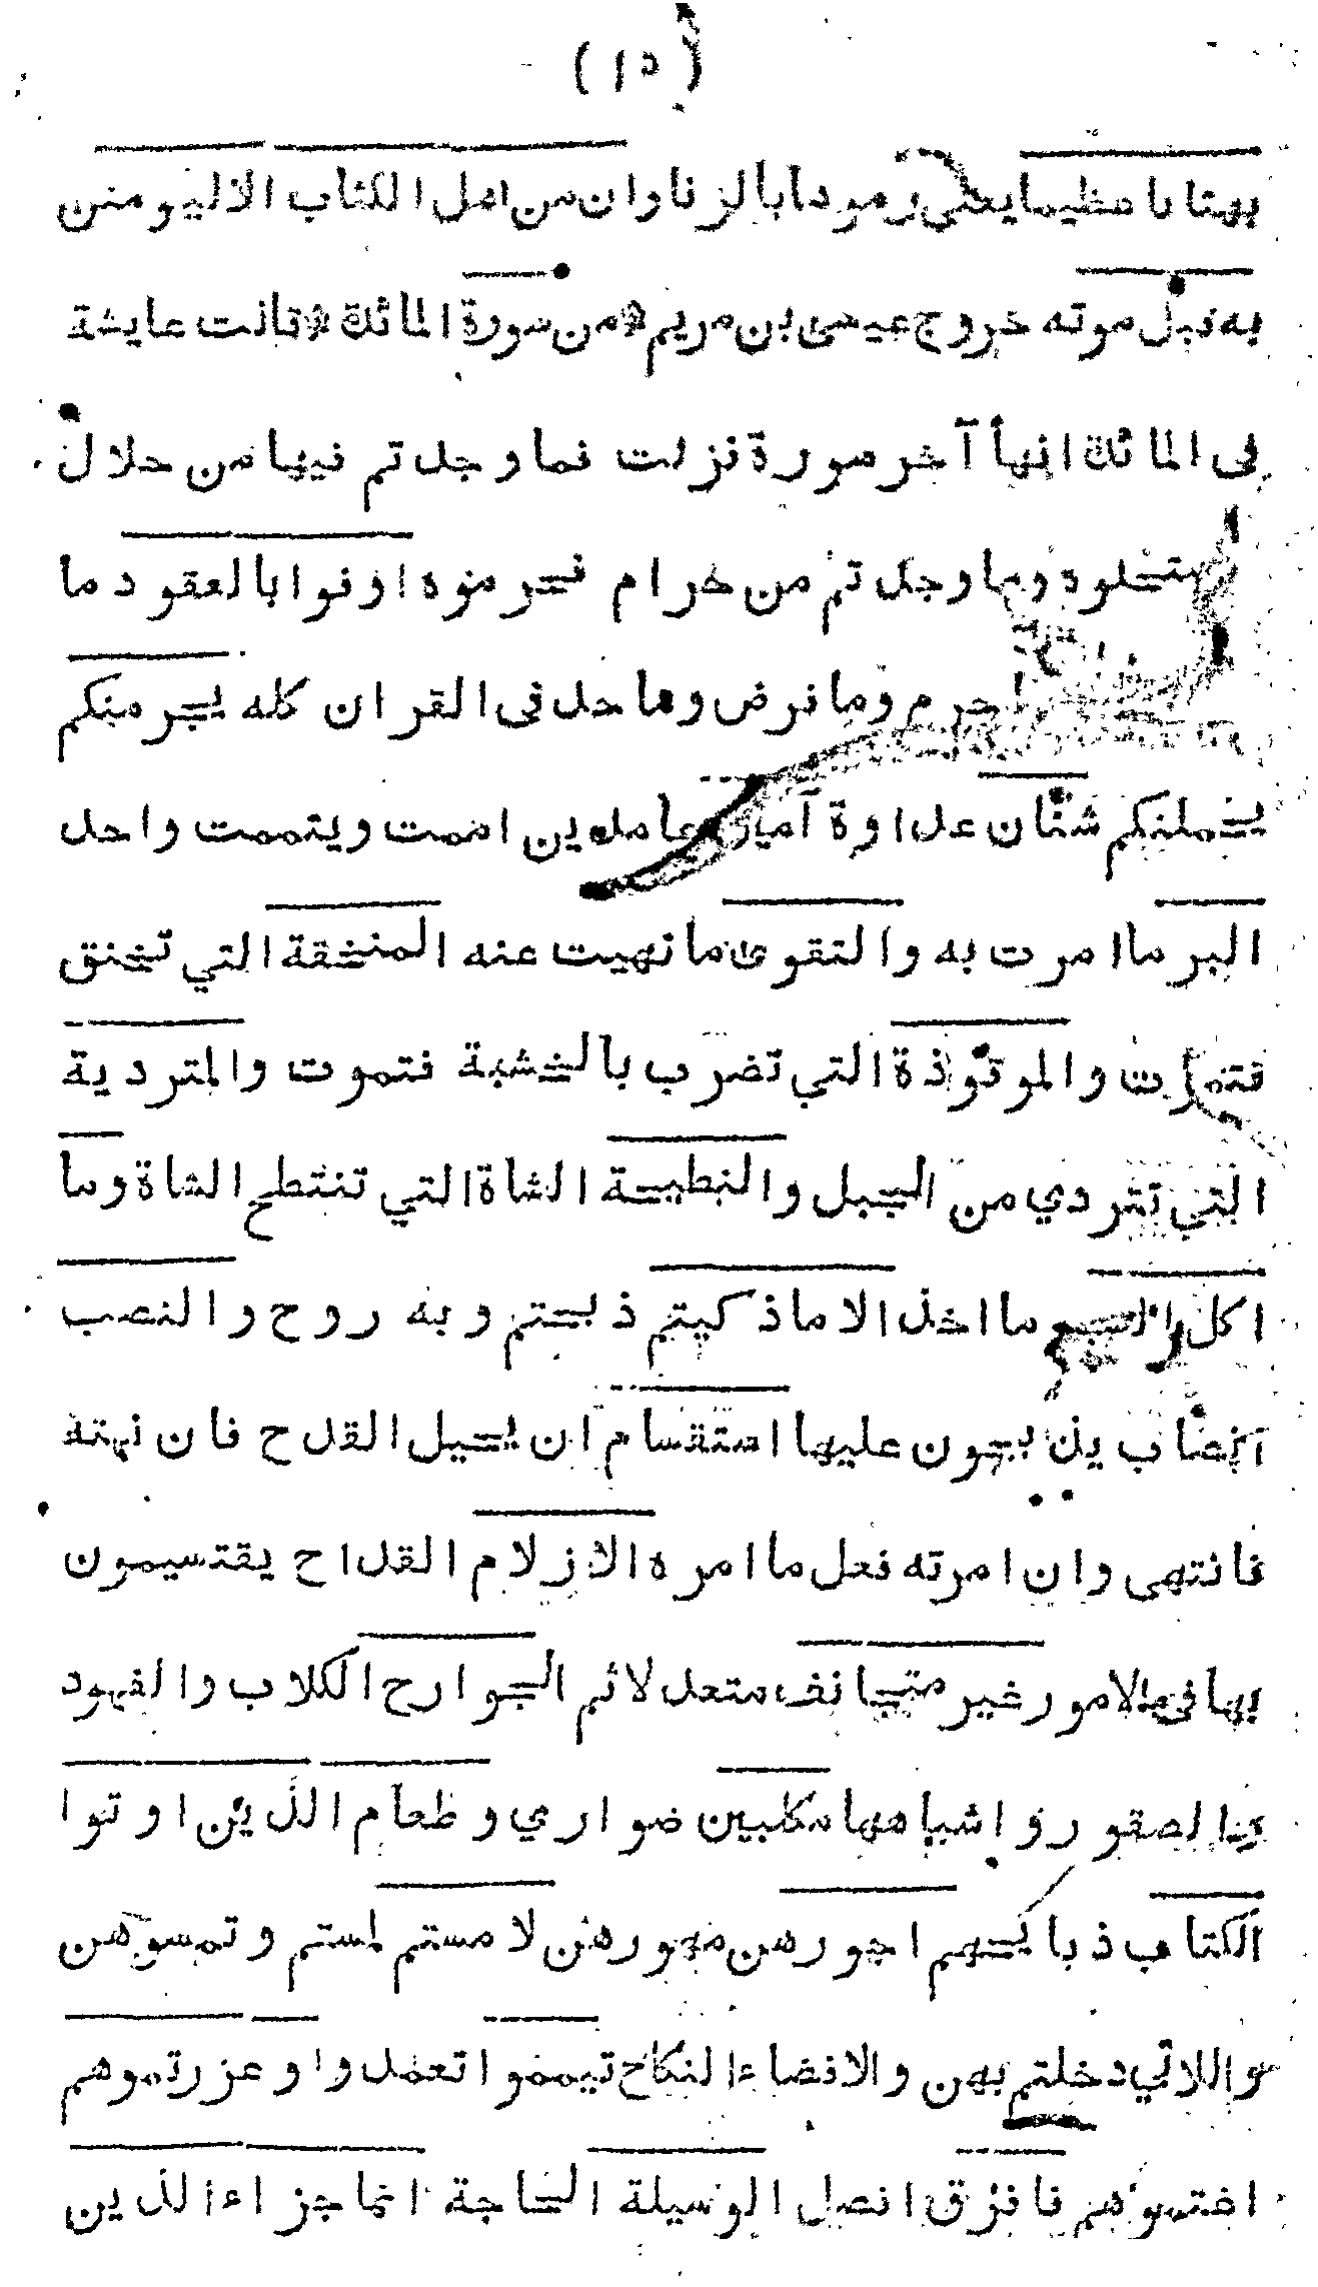 (١٥)
بهتانا عظيما يعني رموها بالزنا وان من اهل الكتاب الا ليومنن
به قبل موته خروج عيسى بن مريم * من سورة المائدة * قالت عايشة
فى المائدة انها آخر سورة نزلت فما وجد تم فيها من حلال
فاستحلوه وما وجد تم من حرام فحرموه اوفوا بالعقود ما
احل وما حرم وما فرض وما حد فى القران كله يجرمنكم
يحملنكم شنئان عداوة آمين عامدين اممت ويتممت واحد
البر ما امرت به والتقوى ما نهيت عنه المنخنقة التي تخنق
فتموت والموقوذة التي تضرب بالخشبة فتموت والمتردية
التي تتردي من الجبل والنطيحة الشاة التي تنتطح الشاة وما
اكل السبع ما اخذ الا ما ذكيتم ذبحتم وبه روح والنصب
انصاب يذبحون عليها استقسام ان يجيل القداح فان نهته
فانتهى وان امرته فعل ما امره الازلام القداح يقتسيمون
بها فى الامور غير متجانف متعد لاثم الجوارح الكلاب والفهود
والصقور واشباهها مكلبين ضواري وطعام الذين اوتوا
الكتاب ذبايحهم اجورهن مهورهن لا مستم لمستم وتمسوهن
واللاتي دخلتم بهن والافضاء النكاح تيمموا تعمدوا وعزرتموهم
اعنتموهم فافرق افصل الوسيلة الحاجة انما جزاء الذين